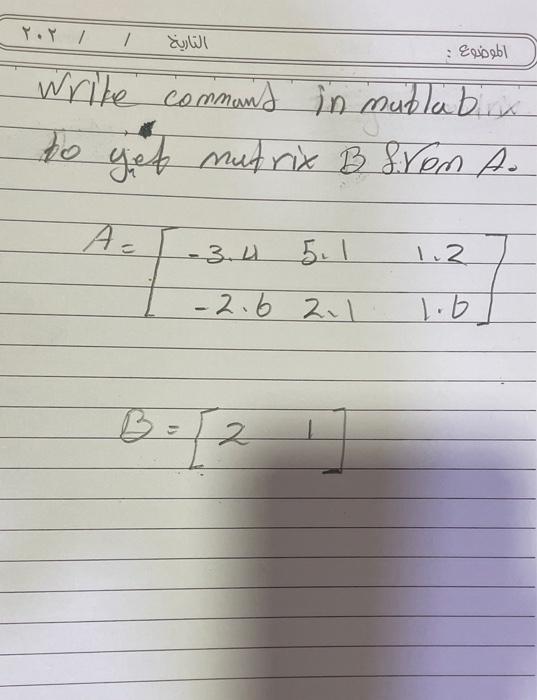 الموضوع : التاريخ / / ٢٠٢
Write command in matlab
to get matrix B from A.
A = [ -3.4 5.1 1.2
-2.6 2.1 1.6 ]
B = [ 2 1 ]